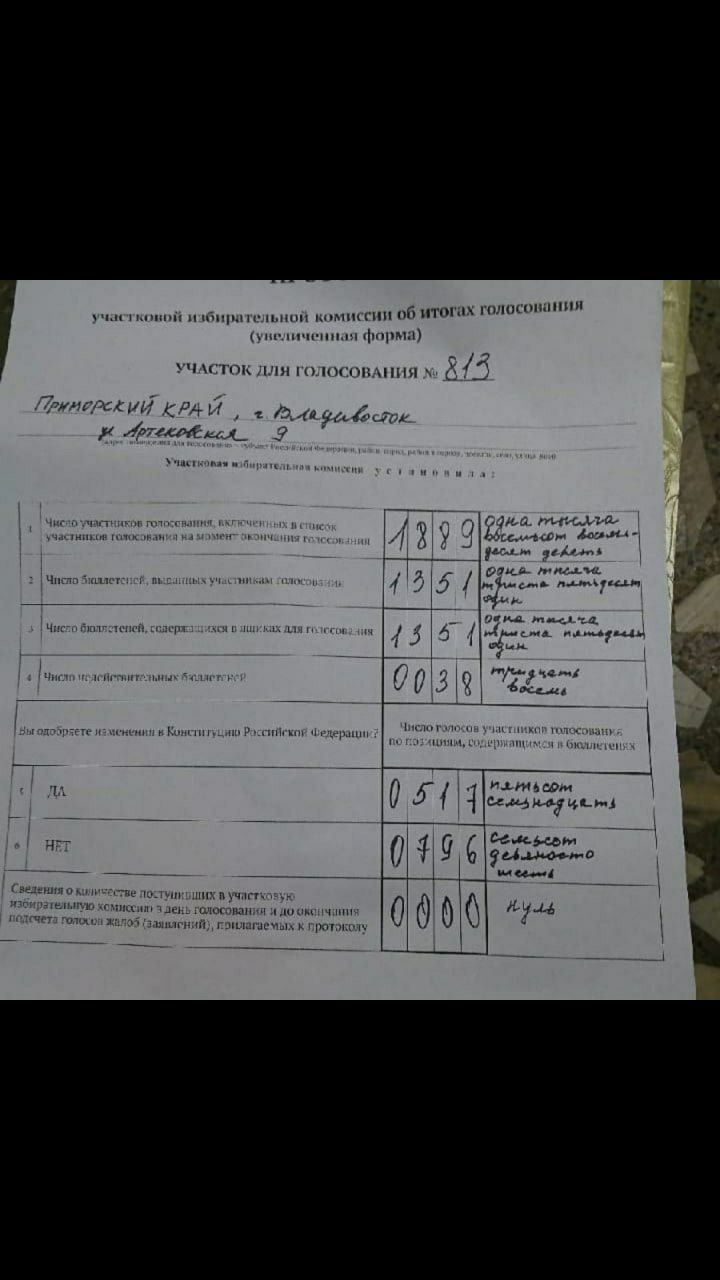 участковой избирательной комиссии об итогах голосования
(увеличенная форма)
УЧАСТОК ДЛЯ ГОЛОСОВАНИЯ № 813
Приморский край, г. Владивосток
ул Артековская 9
Участковая избирательная комиссия установила:
1 Число участников голосования, включенных в список участников голосования на момент окончания голосования 1889 одна тысяча
восемьсот восемь-
десят девять
2 Число бюллетеней, выданных участникам голосования 1351 одна тысяча
триста пятьдесят
один
3 Число бюллетеней, содержащихся в ящиках для голосования 1351 одна тысяча
триста пятьдесят
один
4 Число недействительных бюллетеней 0038 тридцать
восемь
Вы одобряете изменения в Конституцию Российской Федерации? Число голосов участников голосования
по позициям, содержащимся в бюллетенях
5 ДА 0517 пятьсот
семнадцать
6 НЕТ 0796 семьсот
девяносто
шесть
Сведения о количестве поступивших в участковую
избирательную комиссию в день голосования и до окончания
подсчета голосов жалоб (заявлений), прилагаемых к протоколу 0000 нуль